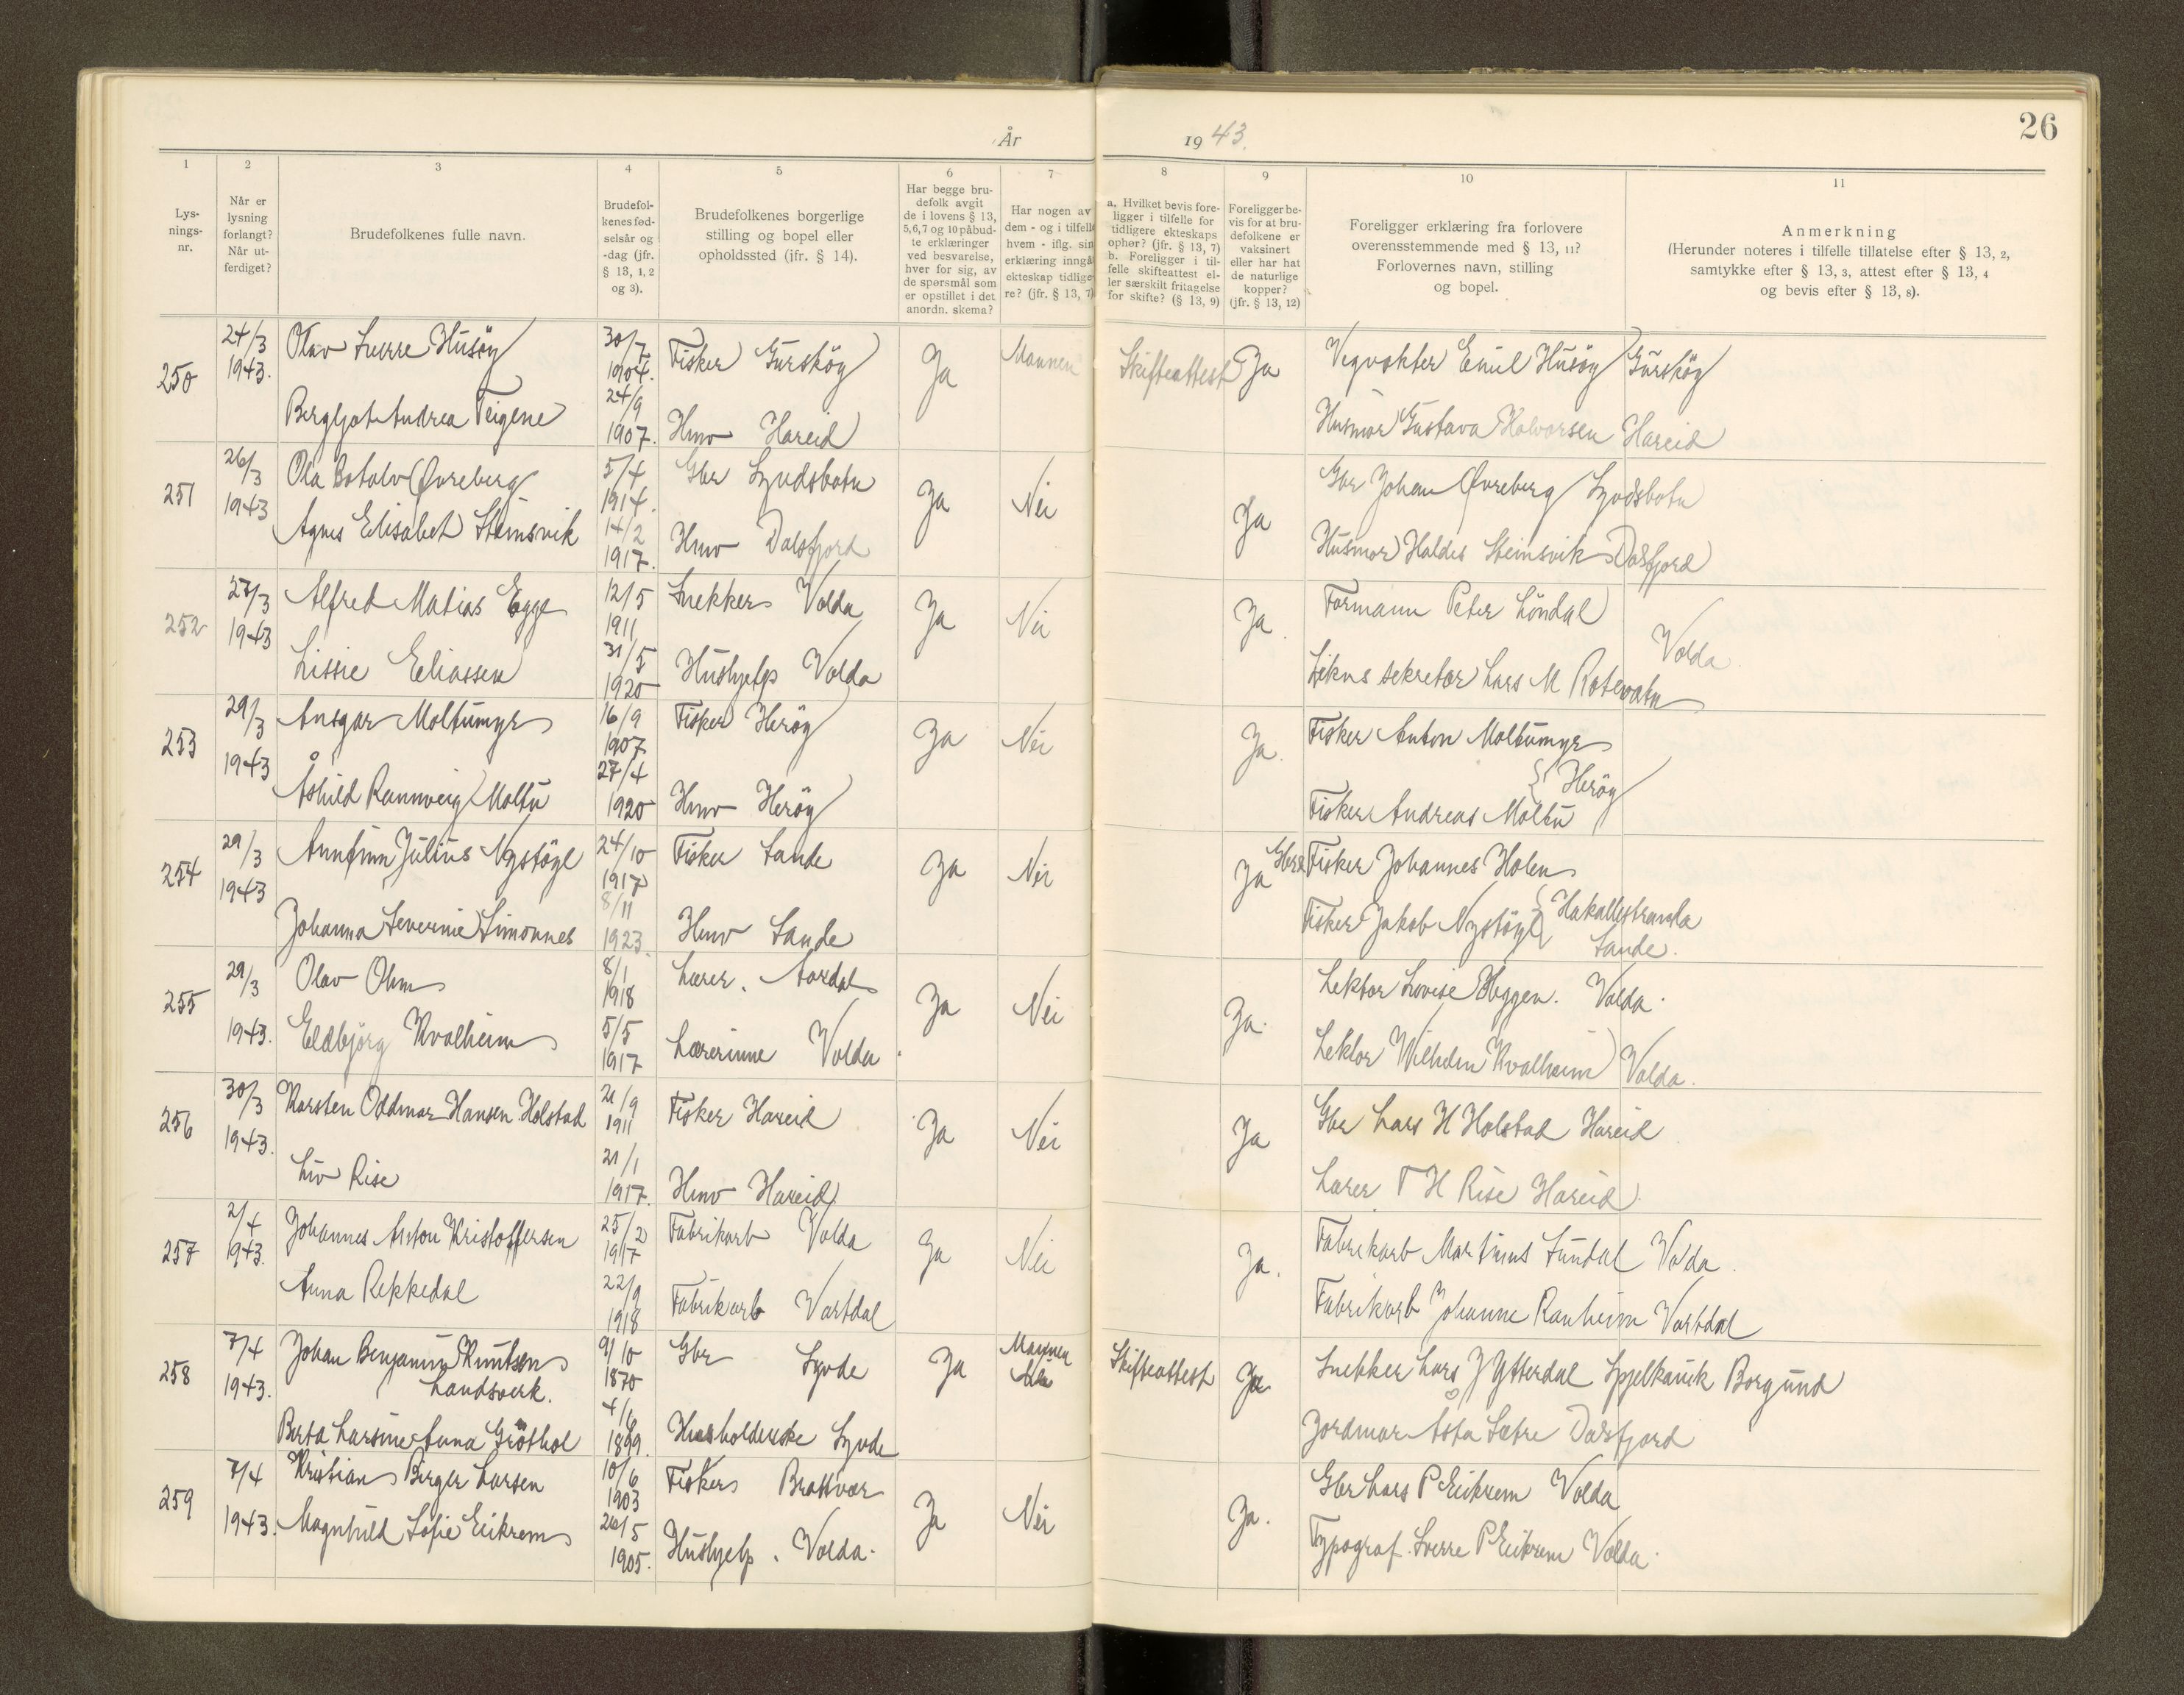 År 1943.
26
1 2 3 4 5 6 7 8 9 10 11
Lys-
nings-
nr.
Når er
lysning
forlangt?
Når ut-
ferdiget?
Brudefolkenes fulle navn.
Brudefol-
kenes fød-
selsår og
-dag (jfr.
§ 13, 1, 2
og 3).
Brudefolkenes borgerlige
stilling og bopel eller
opholdssted (jfr. § 14).
Har begge bru-
defolk avgit
de i lovens § 13,
5,6,7 og 10 påbud-
te erklæringer
ved besvarelse,
hver for sig, av
de spørsmål som
er opstillet i det
anordn. skema?
Har nogen av
dem - og i tilfelle
hvem - iflg. sin
erklæring inngå
ekteskap tidlige-
re? (jfr. § 13, 7)
a. Hvilket bevis fore-
ligger i tilfelle for
tidligere ekteskaps
ophør? (jfr. § 13, 7)
b. Foreligger i til-
felle skifteattest el-
ler særskilt fritagelse
for skifte? (§ 13, 9)
Foreligger be-
vis for at bru-
defolkene er
vaksinert
eller har hat
de naturlige
kopper?
(jfr. § 13, 12)
Foreligger erklæring fra forlovere
overensstemmende med § 13, 11?
Forlovernes navn, stilling
og bopel.
Anmerkning
(Herunder noteres i tilfelle tillatelse efter § 13, 2,
samtykke efter § 13, 3, attest efter § 13, 4
og bevis efter § 13, 8).
250 24/3 1943. Olav Sverre Husöy 30/7 1904. Fisker Gurskøy Ja Mannen Skifteattest Ja Vegvokter Emil Husöy Gurskøy
Bergljot Andrea Teigene 24/9 1907. Hmv Hareid Husmor Gustava Halvorsen Hareid
251 26/3 1943 Ola Botolv Øvreberg 5/4 1914. Gbr Syvdsbotn Ja Nei Ja Gbr Johan Øvreberg Syvdsbotn
Agnes Elisabet Steinsvik 14/2 1917. Hmv Dalsfjord Husmor Haldis Steinsvik Dalsfjord
252 27/3 1943 Alfred Matias Egge 12/5 1911 Snekker Volda Ja Nei Ja. Formann Peter Löndal
Lissie Eeliassen 31/5 1920 Hushjelp Volda Likns sekretær Lars M Rotevatn Volda
253 29/3 1943 Ansgar Moltumyr 16/9 1907 Fisker Heröy Ja Nei Ja. Fisker Anton Moltumyr
Åshild Rannveig Moltu 27/4 1920 Hmv Heröy Fisker Andreas Moltu Heröy
254 29/3 1943 Annfinn Julius Nystöyl 24/10 1917 Fisker Sande Ja Nei Ja Gbr & Fisker Johannes Holen
Johanna Severine Simonnes 8/11 1923. Hmv Sande Fisker Jakob Nystöyl Hakallestranda
Sande.
255 29/3 1943. Olav Ohm 8/1 1918 Lærer. Aordal Ja Nei Ja. Lektor Lovise Heggen. Volda.
Eldbjörg Kvalheim 5/5 1917 Lærerinne Volda. Lektor Wilhelm Kvalheim Volda.
256 30/3 1943. Karsten Oddmar Hansen Holstad 21/9 1911 Fisker Hareid Ja Nei Ja Gbr Lars H Holstad Hareid
Liv Rise 21/1 1917. Hmv Hareid Lærer T H Rise Hareid.
257 2/4 1943. Johannes Anton Kristoffersen 25/2 1917 Fabrikarb Volda Ja Nei Ja. Fabrikarb Martinus Sundal Volda.
Anna Rekkedal 22/9 1918 Fabrikarb Vartdal Fabrikarb Johanne Ranheim Vartdal
258 7/4 1943. Johan Benjamin Knutsen 9/10 1870 Gbr Syvde Ja Mannen Skifteattest Ja Snekker Lars J Ytterdal Spjelkavik Borgund
Landsverk.
Berta Larsine Anna Gröthol 4/6 1899. Husholderske Syvde Jordmor Åsta Sætre Dalsfjord
259 7/4 1943. Kristian Birger Larsen 10/6 1903 Fisker Brattvær Ja Nei Ja. Gbr Lars P Eikrem Volda
Magnhild Sofie Eikrem 26/5 1905. Hushjelp. Volda. Typograf. Sverre P Eikrem Volda.